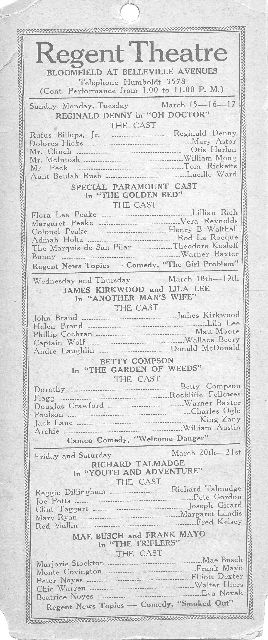 Regent Theatre
BLOOMFIELD AT BELLEVILLE AVENUES
Telephone Humboldt 3578
(Cont. Performance from 1.00 to 11.00 P. M.)
Sunday, Monday, Tuesday March 15—16—17
REGINALD DENNY in "OH DOCTOR"
THE CAST
Rufus Billups, Jr. Reginald Denny
Dolores Hicks Mary Astor
Mr. Clinch Otis Harlan
Mr. McIntosh William Mong
Mr. Peck Tom Ricketts
Aunt Beulah Bush Lucille Ward
SPECIAL PARAMOUNT CAST
In "THE GOLDEN BED"
THE CAST
Flora Lee Peake Lillian Rich
Margaret Peake Vera Reynolds
Colonel Peake Henry B Walthal
Admah Holtz Rod La Rocque
The Marquis de San Pilar Theodore Kosloff
Bunny Warner Baxter
Regent News Topics — Comedy, "The Girl Problem"
Wednesday and Thursday March 18th—19th
JAMES KIRKWOOD and LILA LEE
In "ANOTHER MAN'S WIFE"
THE CAST
John Brand James Kirkwood
Helen Brand Lila Lee
Phillip Cochran Matt Moore
Captain Wolf Wallace Beery
Andre Laughlin Donald McDonald
BETTY COMPSON
In "THE GARDEN OF WEEDS"
THE CAST
Dorothy Betty Compson
Flagg Rockliffe Fellowes
Douglas Crawford Warner Baxter
Paulson Charles Ogle
Jack Lane King Zany
Archie William Austin
Cameo Comedy, "Welcome Danger"
Friday and Saturday March 20th—21st
RICHARD TALMADGE
In "YOUTH AND ADVENTURE"
THE CAST
Reggie Dillingham Richard Talmadge
Joe Potts Pete Gordon
Clint Taggert Joseph Girard
Mary Ryan Margaret Landis
Red Mullin Fred Kelsey
MAE BUSCH and FRANK MAYO
In "THE TRIFLERS"
THE CAST
Marjorie Stockton Mae Busch
Monte Covington Frank Mayo
Peter Noyes Elliott Dexter
Chic Warren Walter Hiers
Beatrice Noyes Eva Novak
Regent News Topics — Comedy, "Smoked Out"